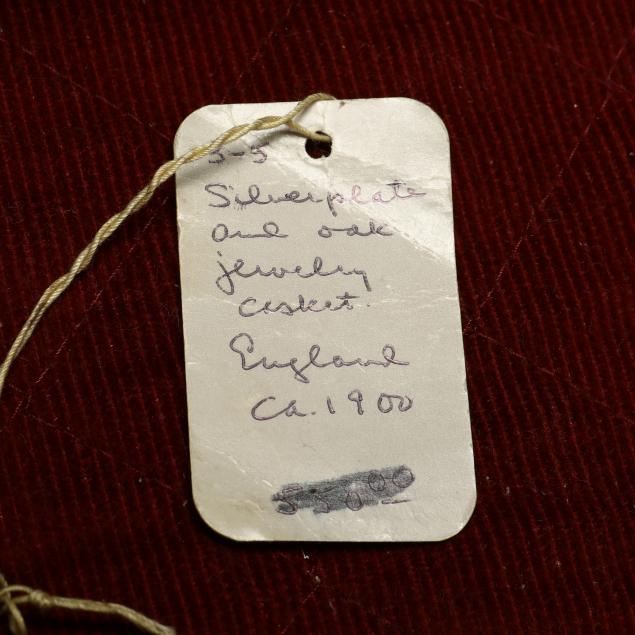 5-5
Silverplate
and oak
jewelry
casket.
England
Ca. 1900